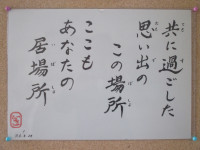 共に過ごした
思い出の
この場所
ここも
あなたの
居場所